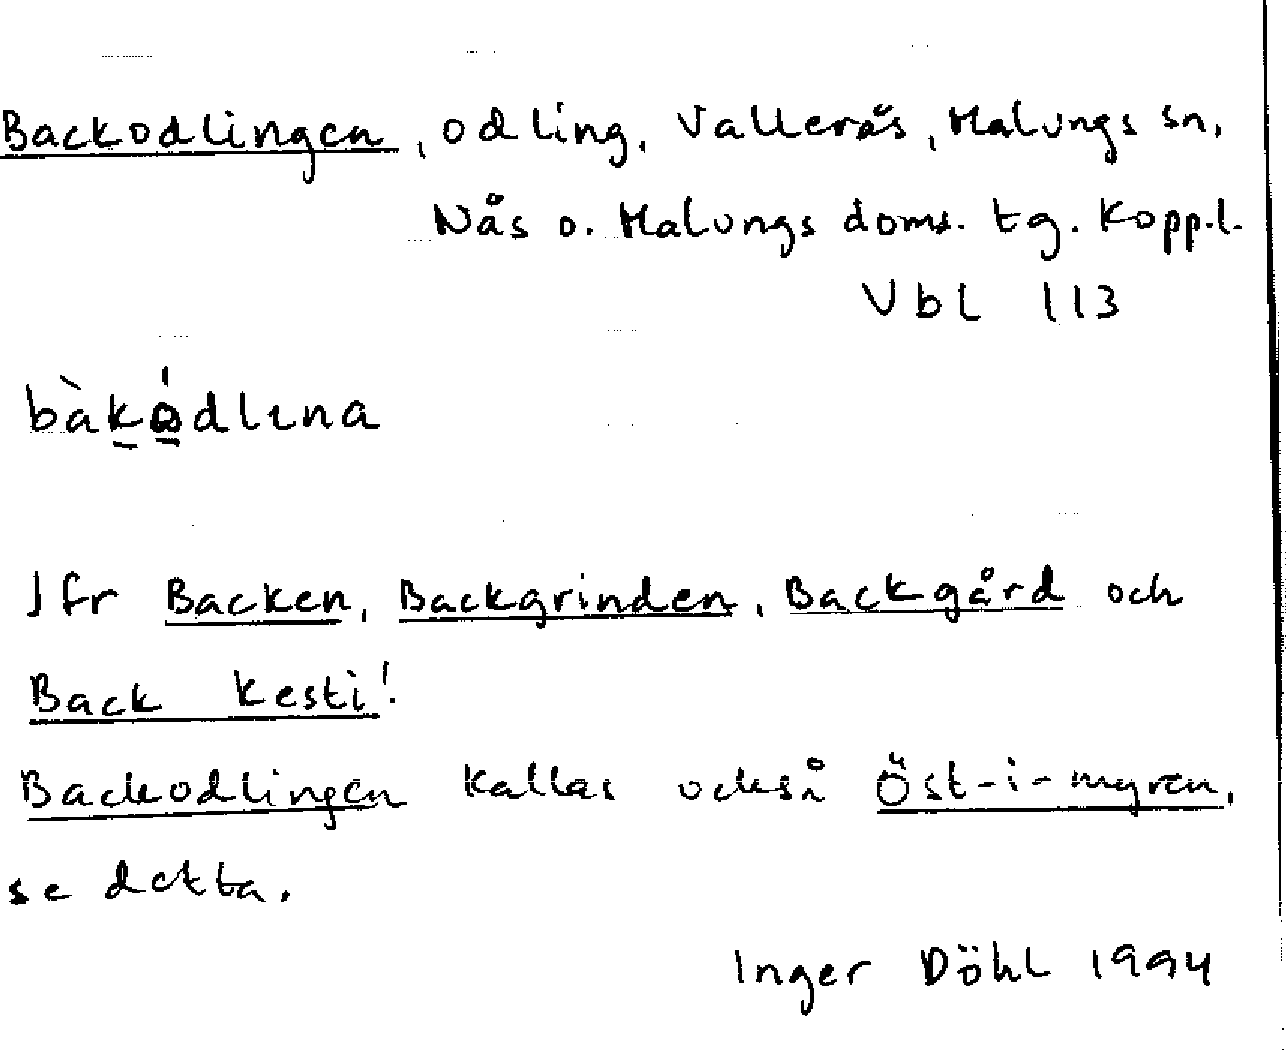 Backodlingen, odling, Vallerås, Malungs sn,
Nås o. Malungs doms. tg. Kopp.l.
Vbl 113
bàk̠o̠̍dlına
Jfr Backen, Backgrinden, Backgård och
Back kesti!
Backodlingen kallas också Öst-i-myren,
se detta.
Inger Döhl 1994